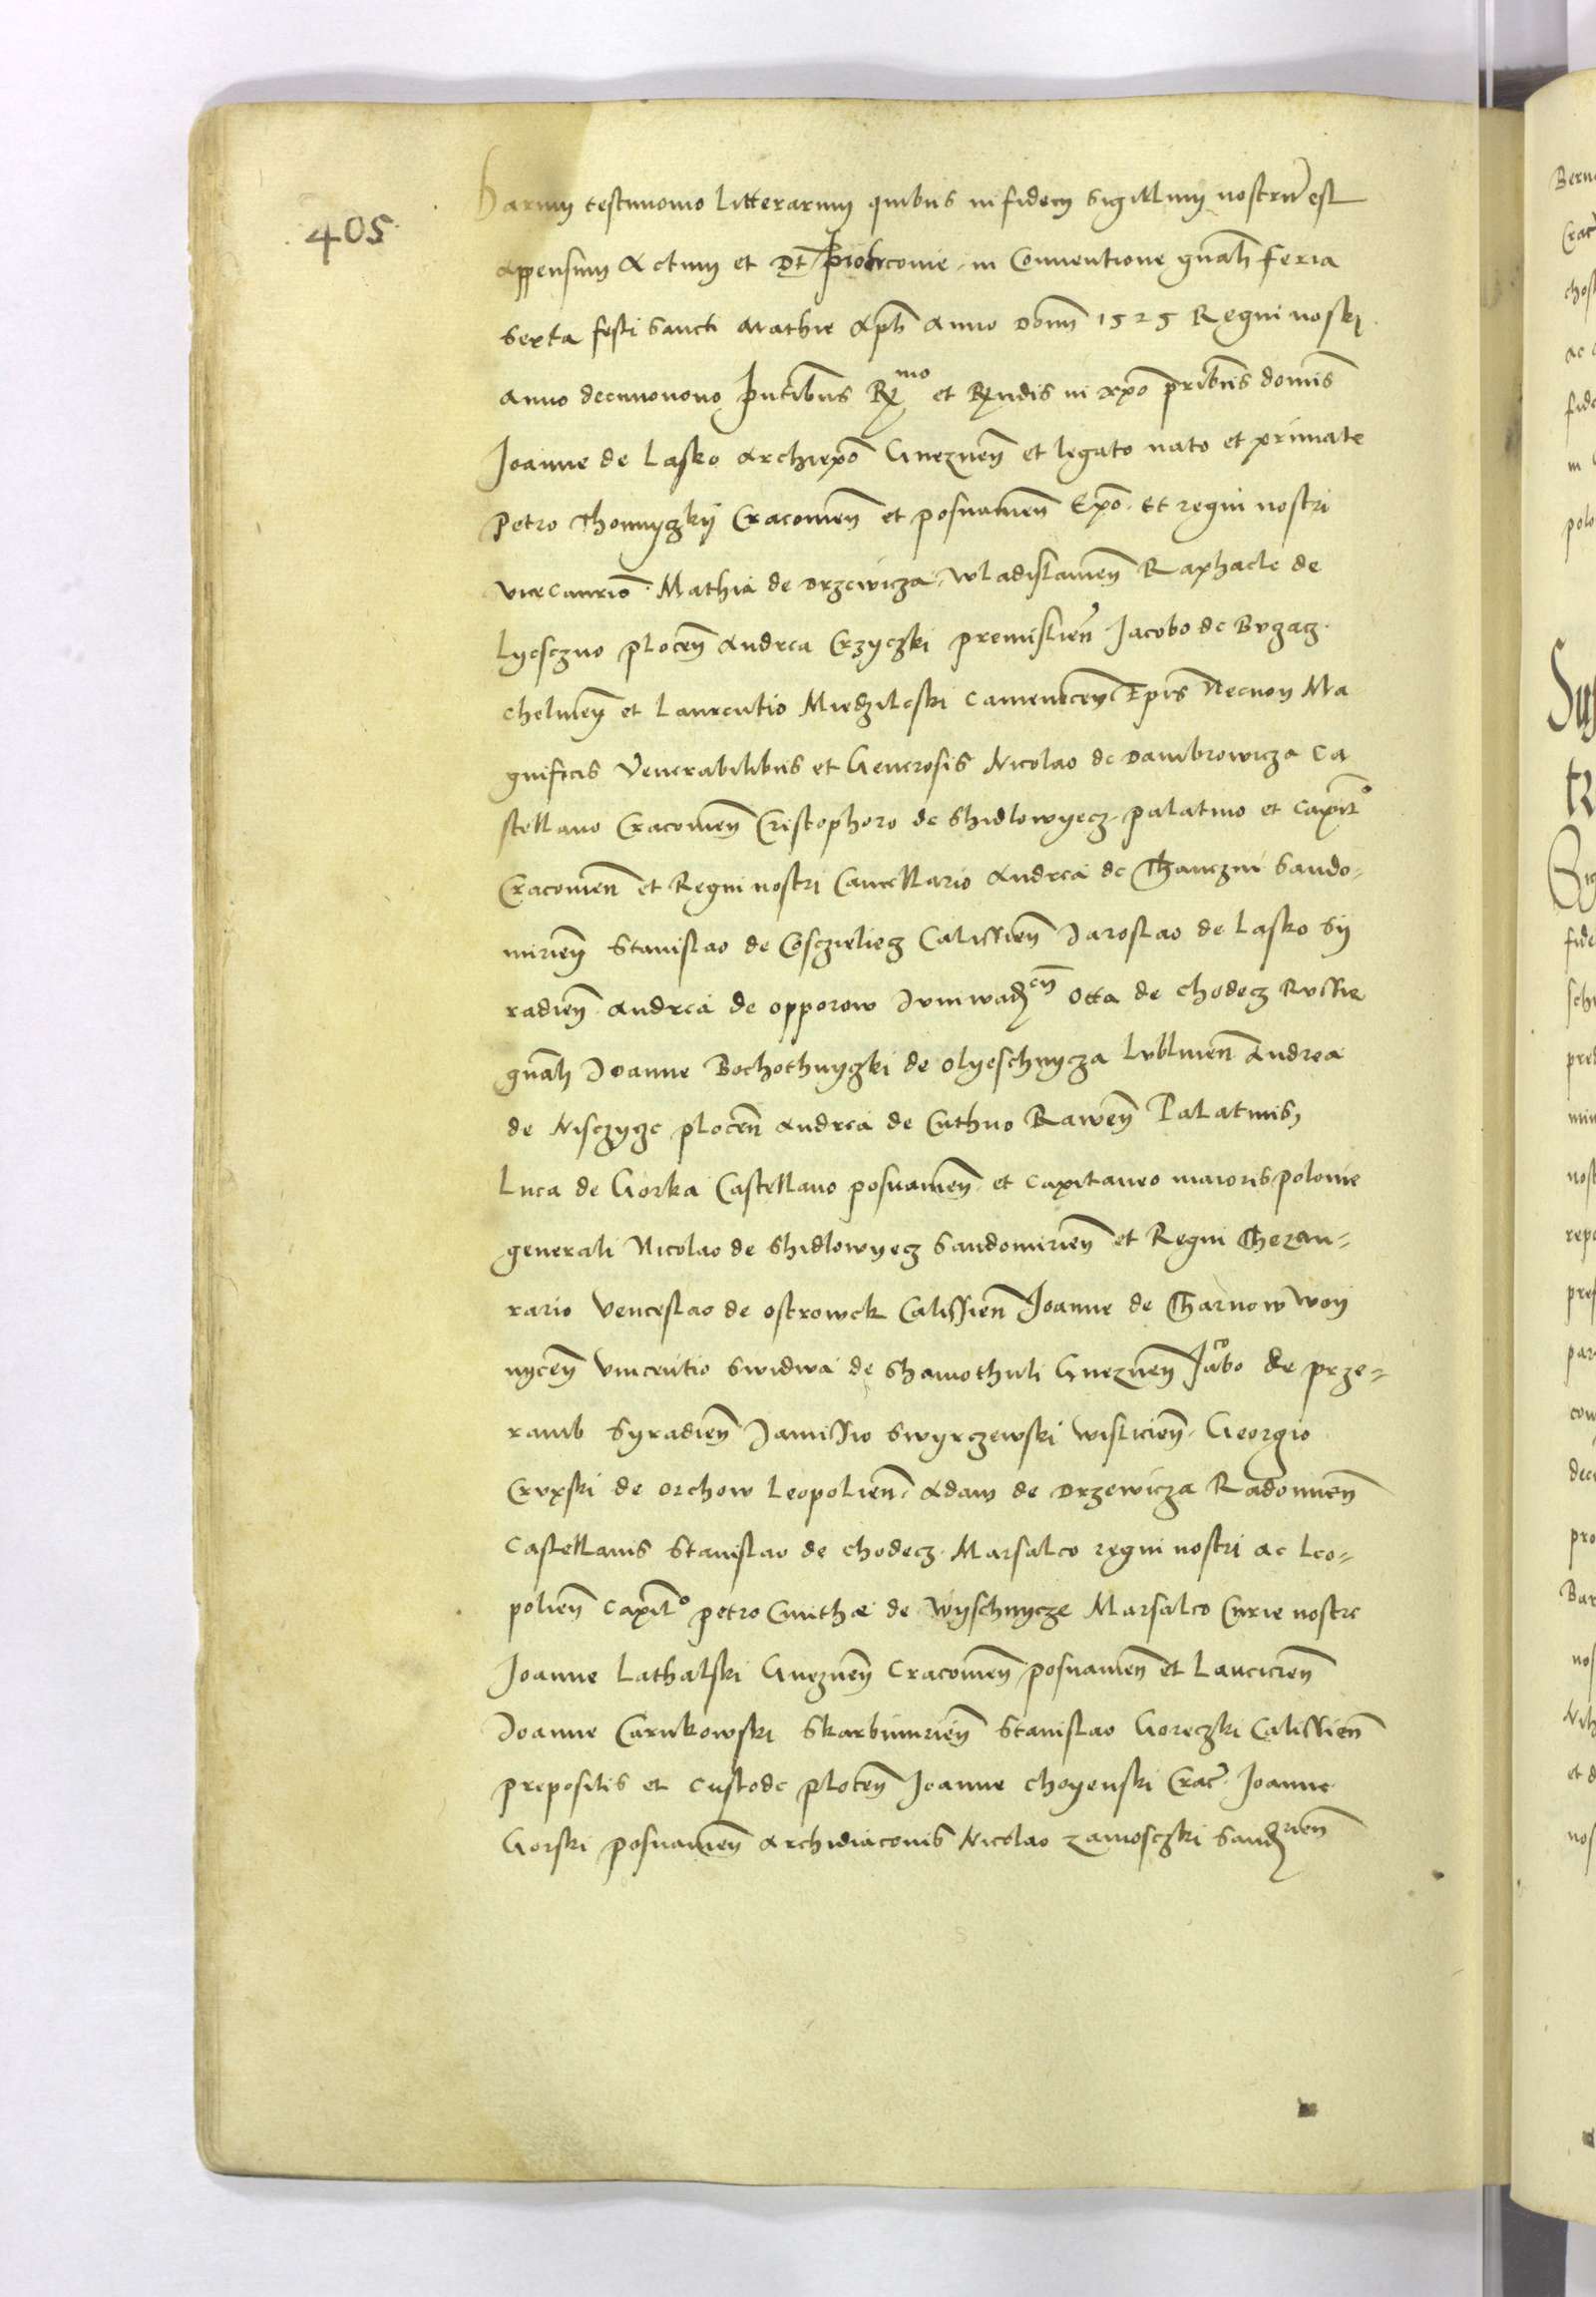 405
harum testimonio litterarum quibus in fidem Sigillum nostrũ est
appensum Actum et Dt̃ Piotrcovie in Conventione gñali feria
sexta festi Sancti Mathie apłi Anno Domĩ 1525 Regni nostri
Anno decimonono p̃ntibus R̃mo et R̃ndis in xpõ p̃ribus domĩs
Joanne de Lasko Archiepõ Gneznen̄ et legato nato et primate
Petro Thomyczkÿ Cracovien̄ et posnanien̄ Epõ. Et regni nostri
vicecancrio. Mathia de Drzewicza Wladislavien̄ Raphaele de
Lyesczno plocen̄ Andrea Crzyczki premislien̄ Jacobo de Bvzacz
chelmen̄ et Laurentio Miedzileski Camenecen̄ Epis Necnon Ma
gnificis Venerabilibus et Generosis Nicolao de Dambrowicza Ca
stellano Cracovien̄ Cristophoro de Shidlowyecz palatino et Capit̃o
Cracovien̄ et Regni nostri Cancellario Andrea de Thanczin Sando-
mirien̄ Stanislao de Cosczielecz Calissien̄ Jaroslao de Lasko Sÿ
radien̄ Andrea de opporow Juniwladcen̄ Otta de chodecz Russie
gñali Joanne Bochothnyczki de Olyeschnycza Lvblinen̄ Andrea
de Nisczycze plocen̄ Andrea de Cuthno Rawen̄ Palatinis
Luca de Gorka Castellano posnanien̄ et Capitaneo maioris polonie
generali Nicolao de Shidlowyecz Sandomirien̄ et Regni Thezau-
rario Venceslao de ostrowek Calissien̄ Joanne de Tharnow Woy
nycen̄ Vincentio Swidwa de Shamothuli Gneznen̄ Jacobo de prze-
ramb Syradien̄ Janissio Swyrczewski wislicien̄ Georgio
Crupski de orchow Leopolien̄ Adam de Drzewicza Radomien̄
Castellanis Stanislao de chodecz Marsalco regni nostri ac Leo-
polien̄ Capit̃o petro Cmithae de Wÿschnycze Marsalco Curie nostre
Joanne Lathalski Gneznen̄ Cracovien̄ posnanien̄ et Lancicien̄
Joanne Carnkowski Skarbimirien̄ Stanislao Goreczki Calissien̄
prepositis et Custode plocen̄ Joanne choyenski Crac̄ Joanne
Gorski posnanien̄ Archidiaconis Nicolao zamosczki Sandrien̄